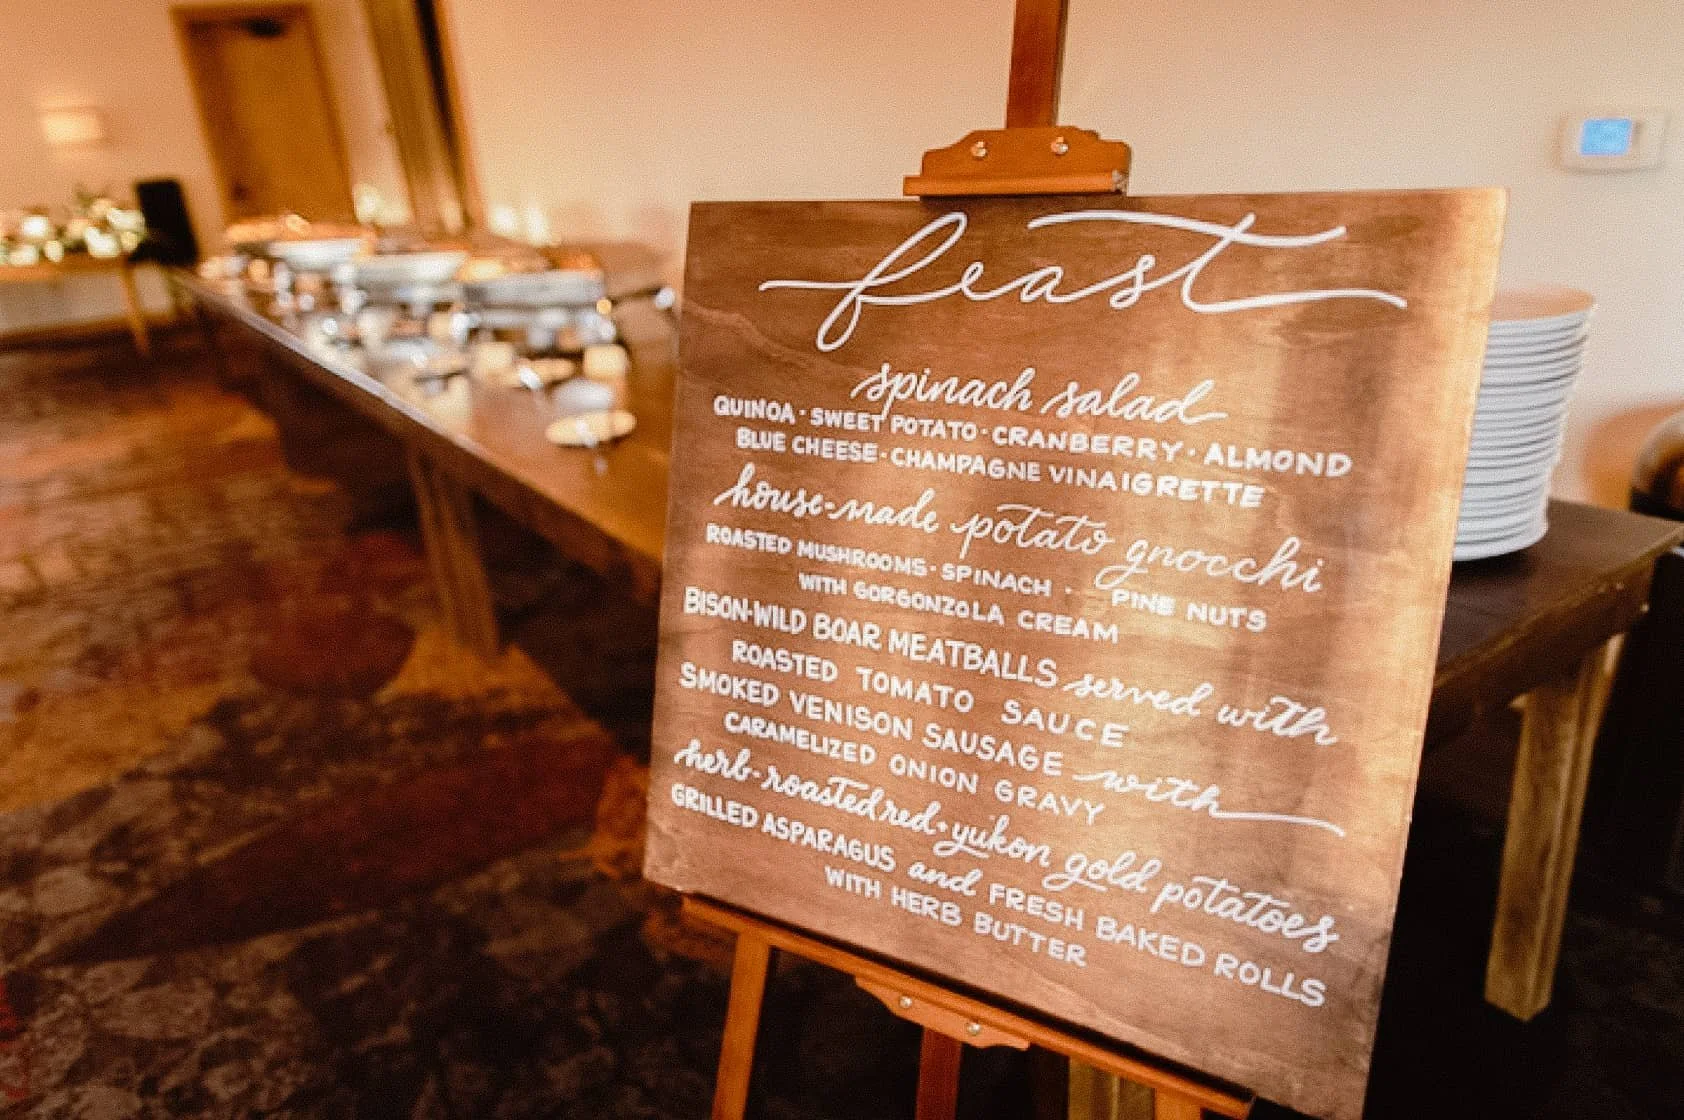 feast
spinach salad
QUINOA · SWEET POTATO · CRANBERRY · ALMOND
BLUE CHEESE · CHAMPAGNE VINAIGRETTE
house-made potato gnocchi
ROASTED MUSHROOMS · SPINACH · PINE NUTS
WITH GORGONZOLA CREAM
BISON-WILD BOAR MEATBALLS served with
ROASTED TOMATO SAUCE
SMOKED VENISON SAUSAGE with
CARAMELIZED ONION GRAVY
herb-roasted red + yukon gold potatoes
GRILLED ASPARAGUS and FRESH BAKED ROLLS
WITH HERB BUTTER